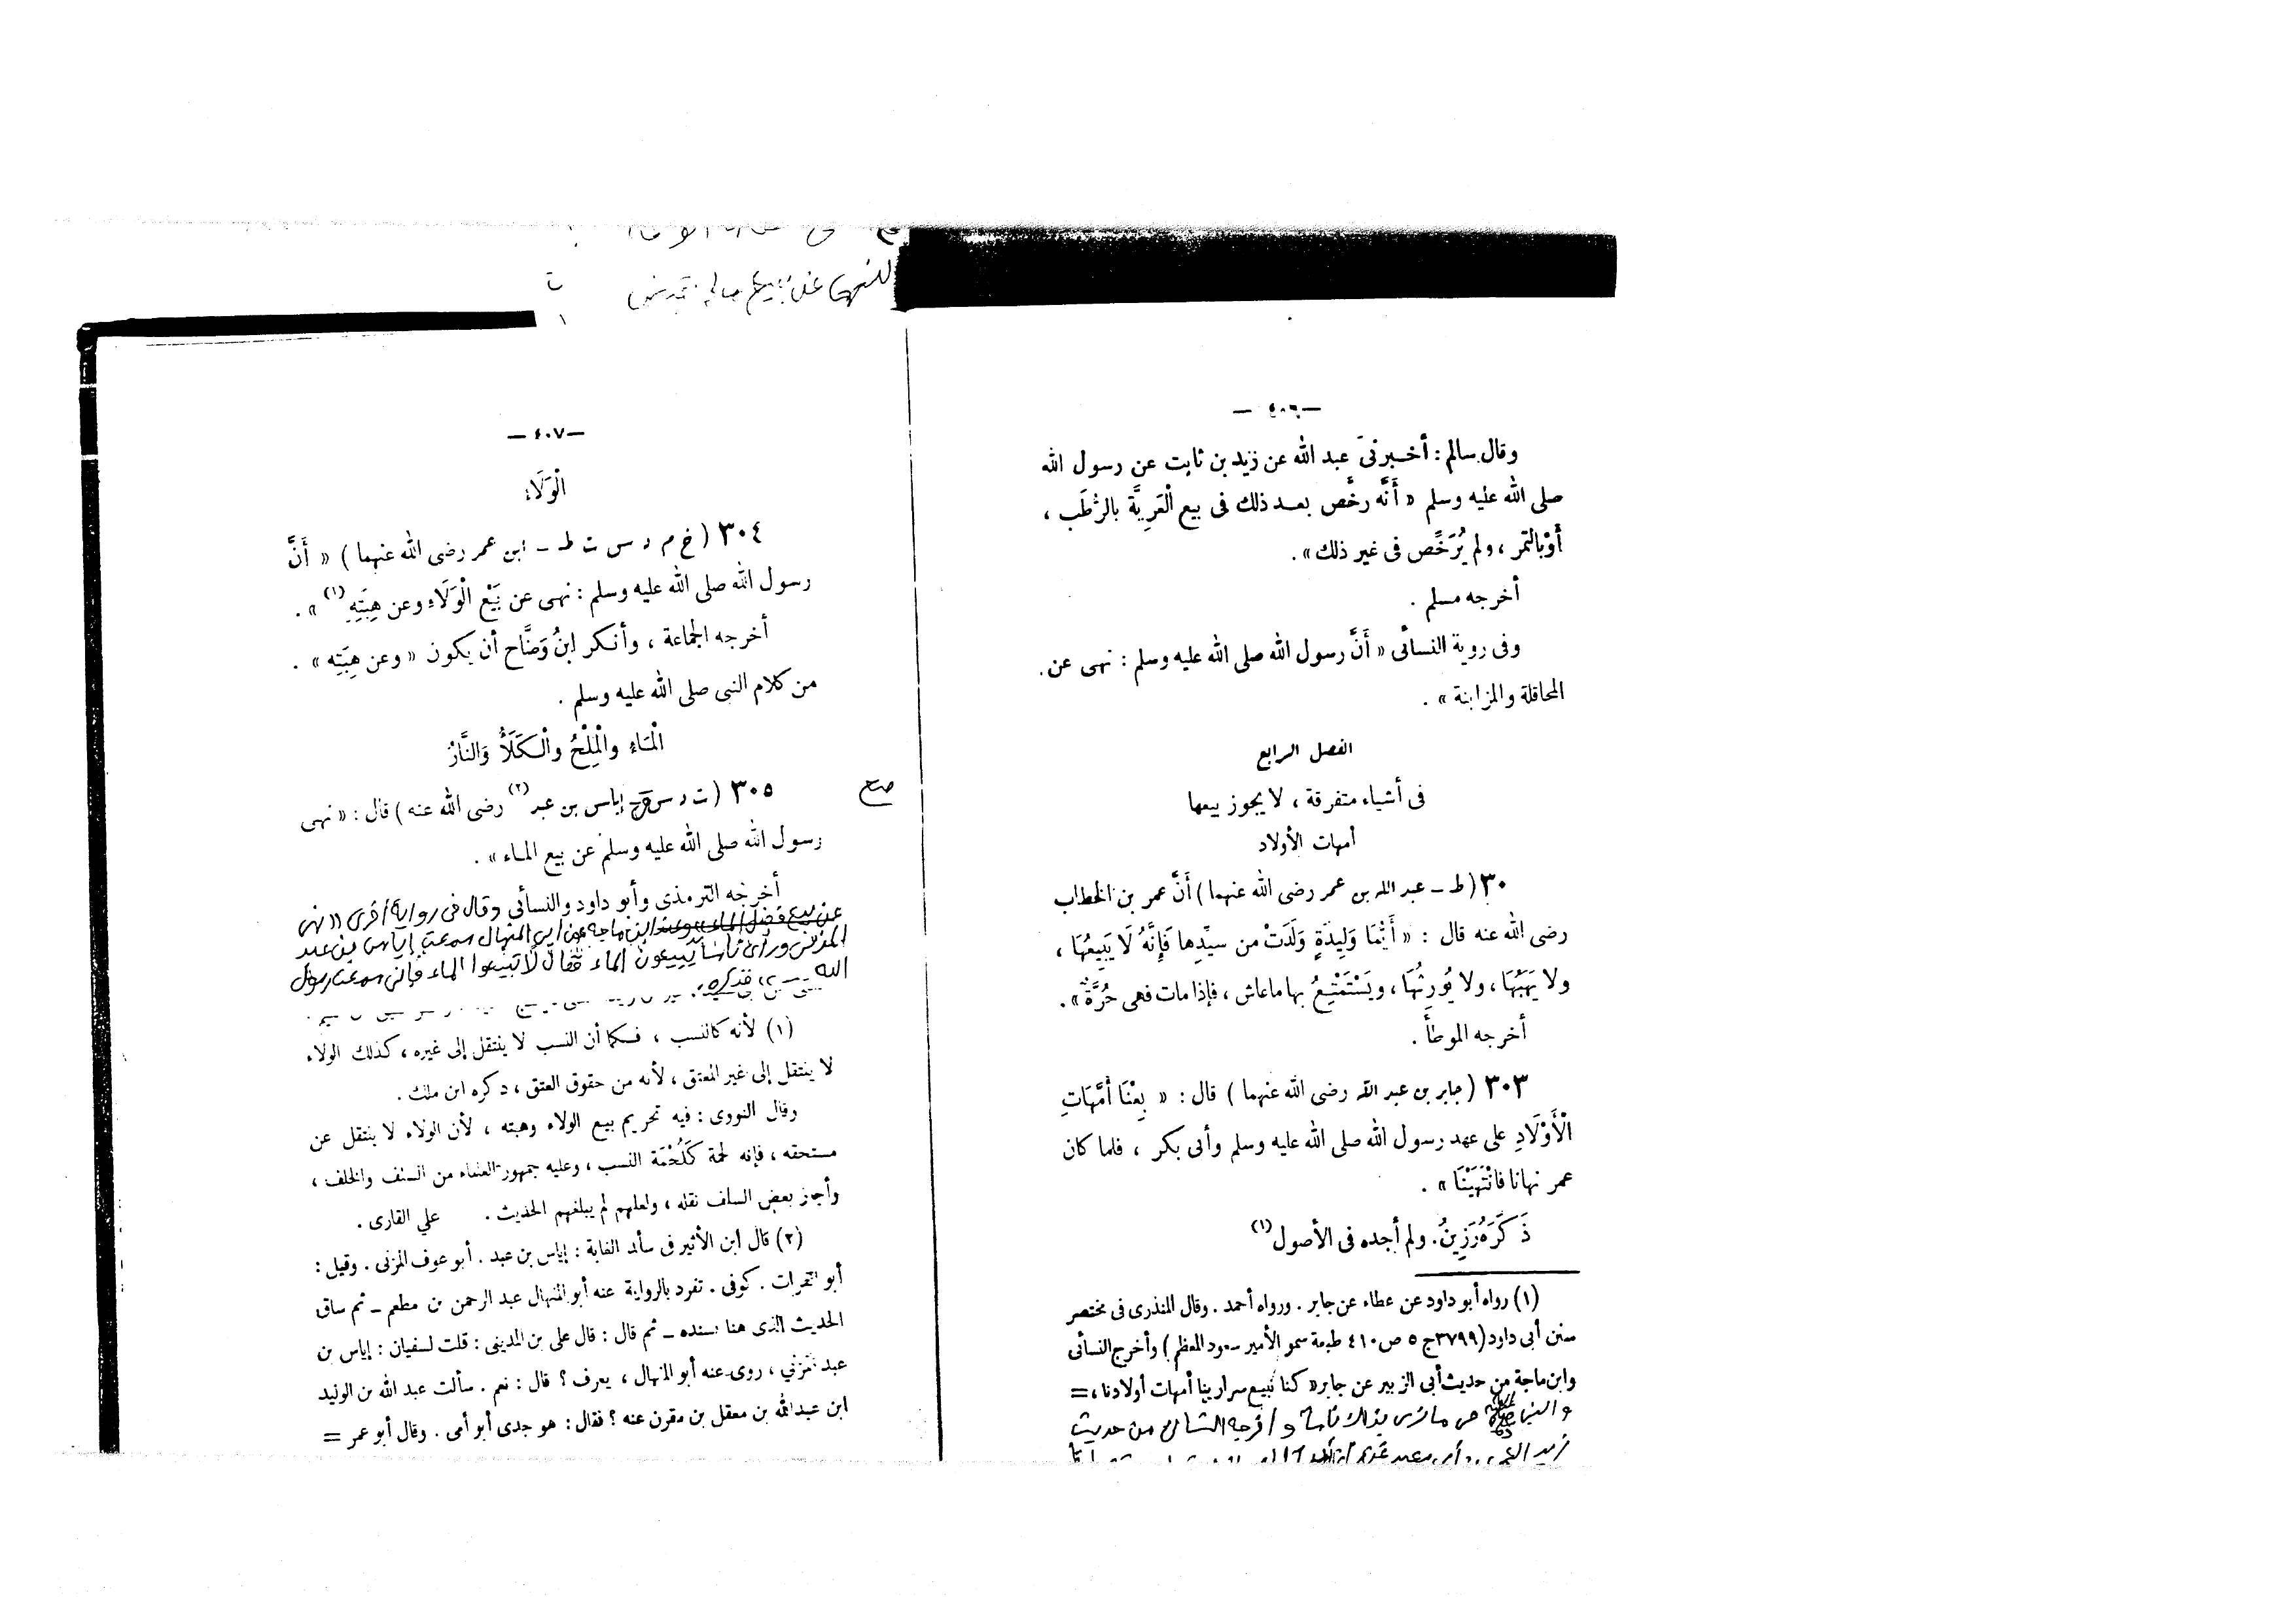 —٤٠٦—
وقال سالم : أخبرنى عبد الله عن زيد بن ثابت عن رسول الله
صلى الله عليه وسلم « أَنَّه رخَّص بعد ذلك فى بيع الْعَرِيَّة بالرُّطَب ،
أوْ بالتمر ، ولم يُرَخِّص فى غير ذلك » .
أخرجه مسلم .
وفى روية النسائى « أَنَّ رسول الله صلى الله عليه وسلم : نهى عن
المحاقلة والمزابنة » .
الفصل الرابع
فى أشياء متفرقة ، لا يجوز بيعها
أمهات الأولاد
٣٠ ( ط – عبد الله بن عمر رضى الله عنهما ) أَنَّ عمر بن الخطاب
رضى الله عنه قال : « أَيُّمَا وَلِيدَةٍ وَلَدَتْ من سيِّدِها فَإِنَّهُ لَا يَبِيعُهَا ،
ولا يَهَبُهَا ، ولا يُورِثُهَا ، ويَسْتَمْتِعُ بها ماعاش ، فإذا مات فهى حُرَّةٌ » .
أخرجه الموطأ .
٣٠٣ ( جابر بن عبد الله رضى الله عنهما ) قال : « بِعْنَا أُمَّهَاتِ
الْأَوْلَادِ على عهد رسول الله صلى الله عليه وسلم وأبى بكر ، فلما كان
عمر نهانا فانْتَهَيْنَا » .
ذَكَرَهُ رَزِينُ . ولم أجده فى الأصول (١)
(١) رواه أبو داود عن عطاء عن جابر . ورواه أحمد . وقال المنذرى فى مختصر
سنن أبى داود (٣٧٩٩ ج ٥ ص ٤١٠ طبعة سمو الأمير سعود المعظم ) وأخرج النسائى
وابن ماجة من حديث أبى الزبير عن جابر « كنا نبيع سرارينا أمهات أولادنا ، =
والنبى حى ما نرى بذلك بأسا و أخرجه النسائى من حديث
—٤٠٧—
الْوَلَاء
٣٠٤ ( خ م د س ت ط – ابن عمر رضى الله عنهما ) « أَنَّ
رسول الله صلى الله عليه وسلم : نهى عن بَيْع الْوَلَاءِ وعن هِبَتِهِ (١) » .
أخرجه الجماعة ، وأنكر ابنُ وَضَّاح أن يكون « وعن هِبَتِه » .
من كلام النبى صلى الله عليه وسلم .
الْمَاءُ والْمِلْحُ والْكَلَأُ وَالنَّارُ
٣٠٥ ( ت د س – إياس بن عبد (٢) رضى الله عنه ) قال : « نهى
رسول الله صلى الله عليه وسلم عن بيع الماء » .
أخرجه الترمذى وأبو داود والنسائى وقال فى رواية أخرى « نهى
عن بيع فضل الماء » وعند ابن ماجه عن ابى المنهال سمعت إياس بن عبد
المزنى ورأى ناسا يبيعون الماء فقال لا تبيعوا الماء فإنى سمعت رسول
الله فذكره .
(١) لأنه كالنسب ، فكما أن النسب لا ينتقل إلى غيره ، كذلك الولاء
لا ينتقل إلى غير المعتق ، لأنه من حقوق العتق ، ذكره ابن ملك .
وقال النووى : فيه تحريم بيع الولاء وهبته ، لأن الولاء لا ينتقل عن
مستحقه ، فإنه لحمة كَلُحْمَة النسب ، وعليه جمهور العلماء من السلف والخلف ،
وأجاز بعض السلف نقله ، ولعلهم لم يبلغهم الحديث . على القارى .
(٢) قال ابن الأثير فى سأند الغابة : إياس بن عبد . أبو عوف المزنى . وقيل :
أبو الفرات . كوفى . تفرد بالرواية عنه أبو المنهال عبد الرحمن بن مطعم – ثم ساق
الحديث الذى هنا بسنده – ثم قال : قال على بن المدينى : قلت لسفيان : إياس بن
عبد المزني ، روى عنه أبو المنهال ، يعرف ؟ قال : نعم . سألت عبد الله بن الوليد
ابن عبد الله بن معقل بن مقرن عنه ؟ فقال : هو جدى أبو أمى . وقال أبو عمر =